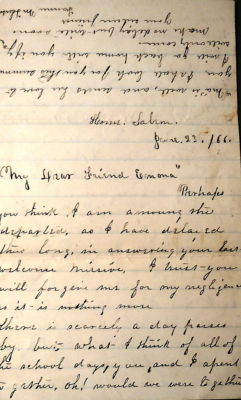 Ma is well, and sends her love to
you. I shall look for you this summer
I will go back home with you if
come.
make no delay, but write soon
Your friend
Fannie
Home. Salem.
Jan. 23. /66.
"My Dear Friend Emma"
Perhaps
you think I am among the
departed, as I have delayed
thus long, in answering your last
welcome missive, I trust you
will forgive me for my negligence
as it is nothing more
there is scarcely a day passes
by but what I think of all of
the school days, you, and I spent
to gether, oh! would we were to gether